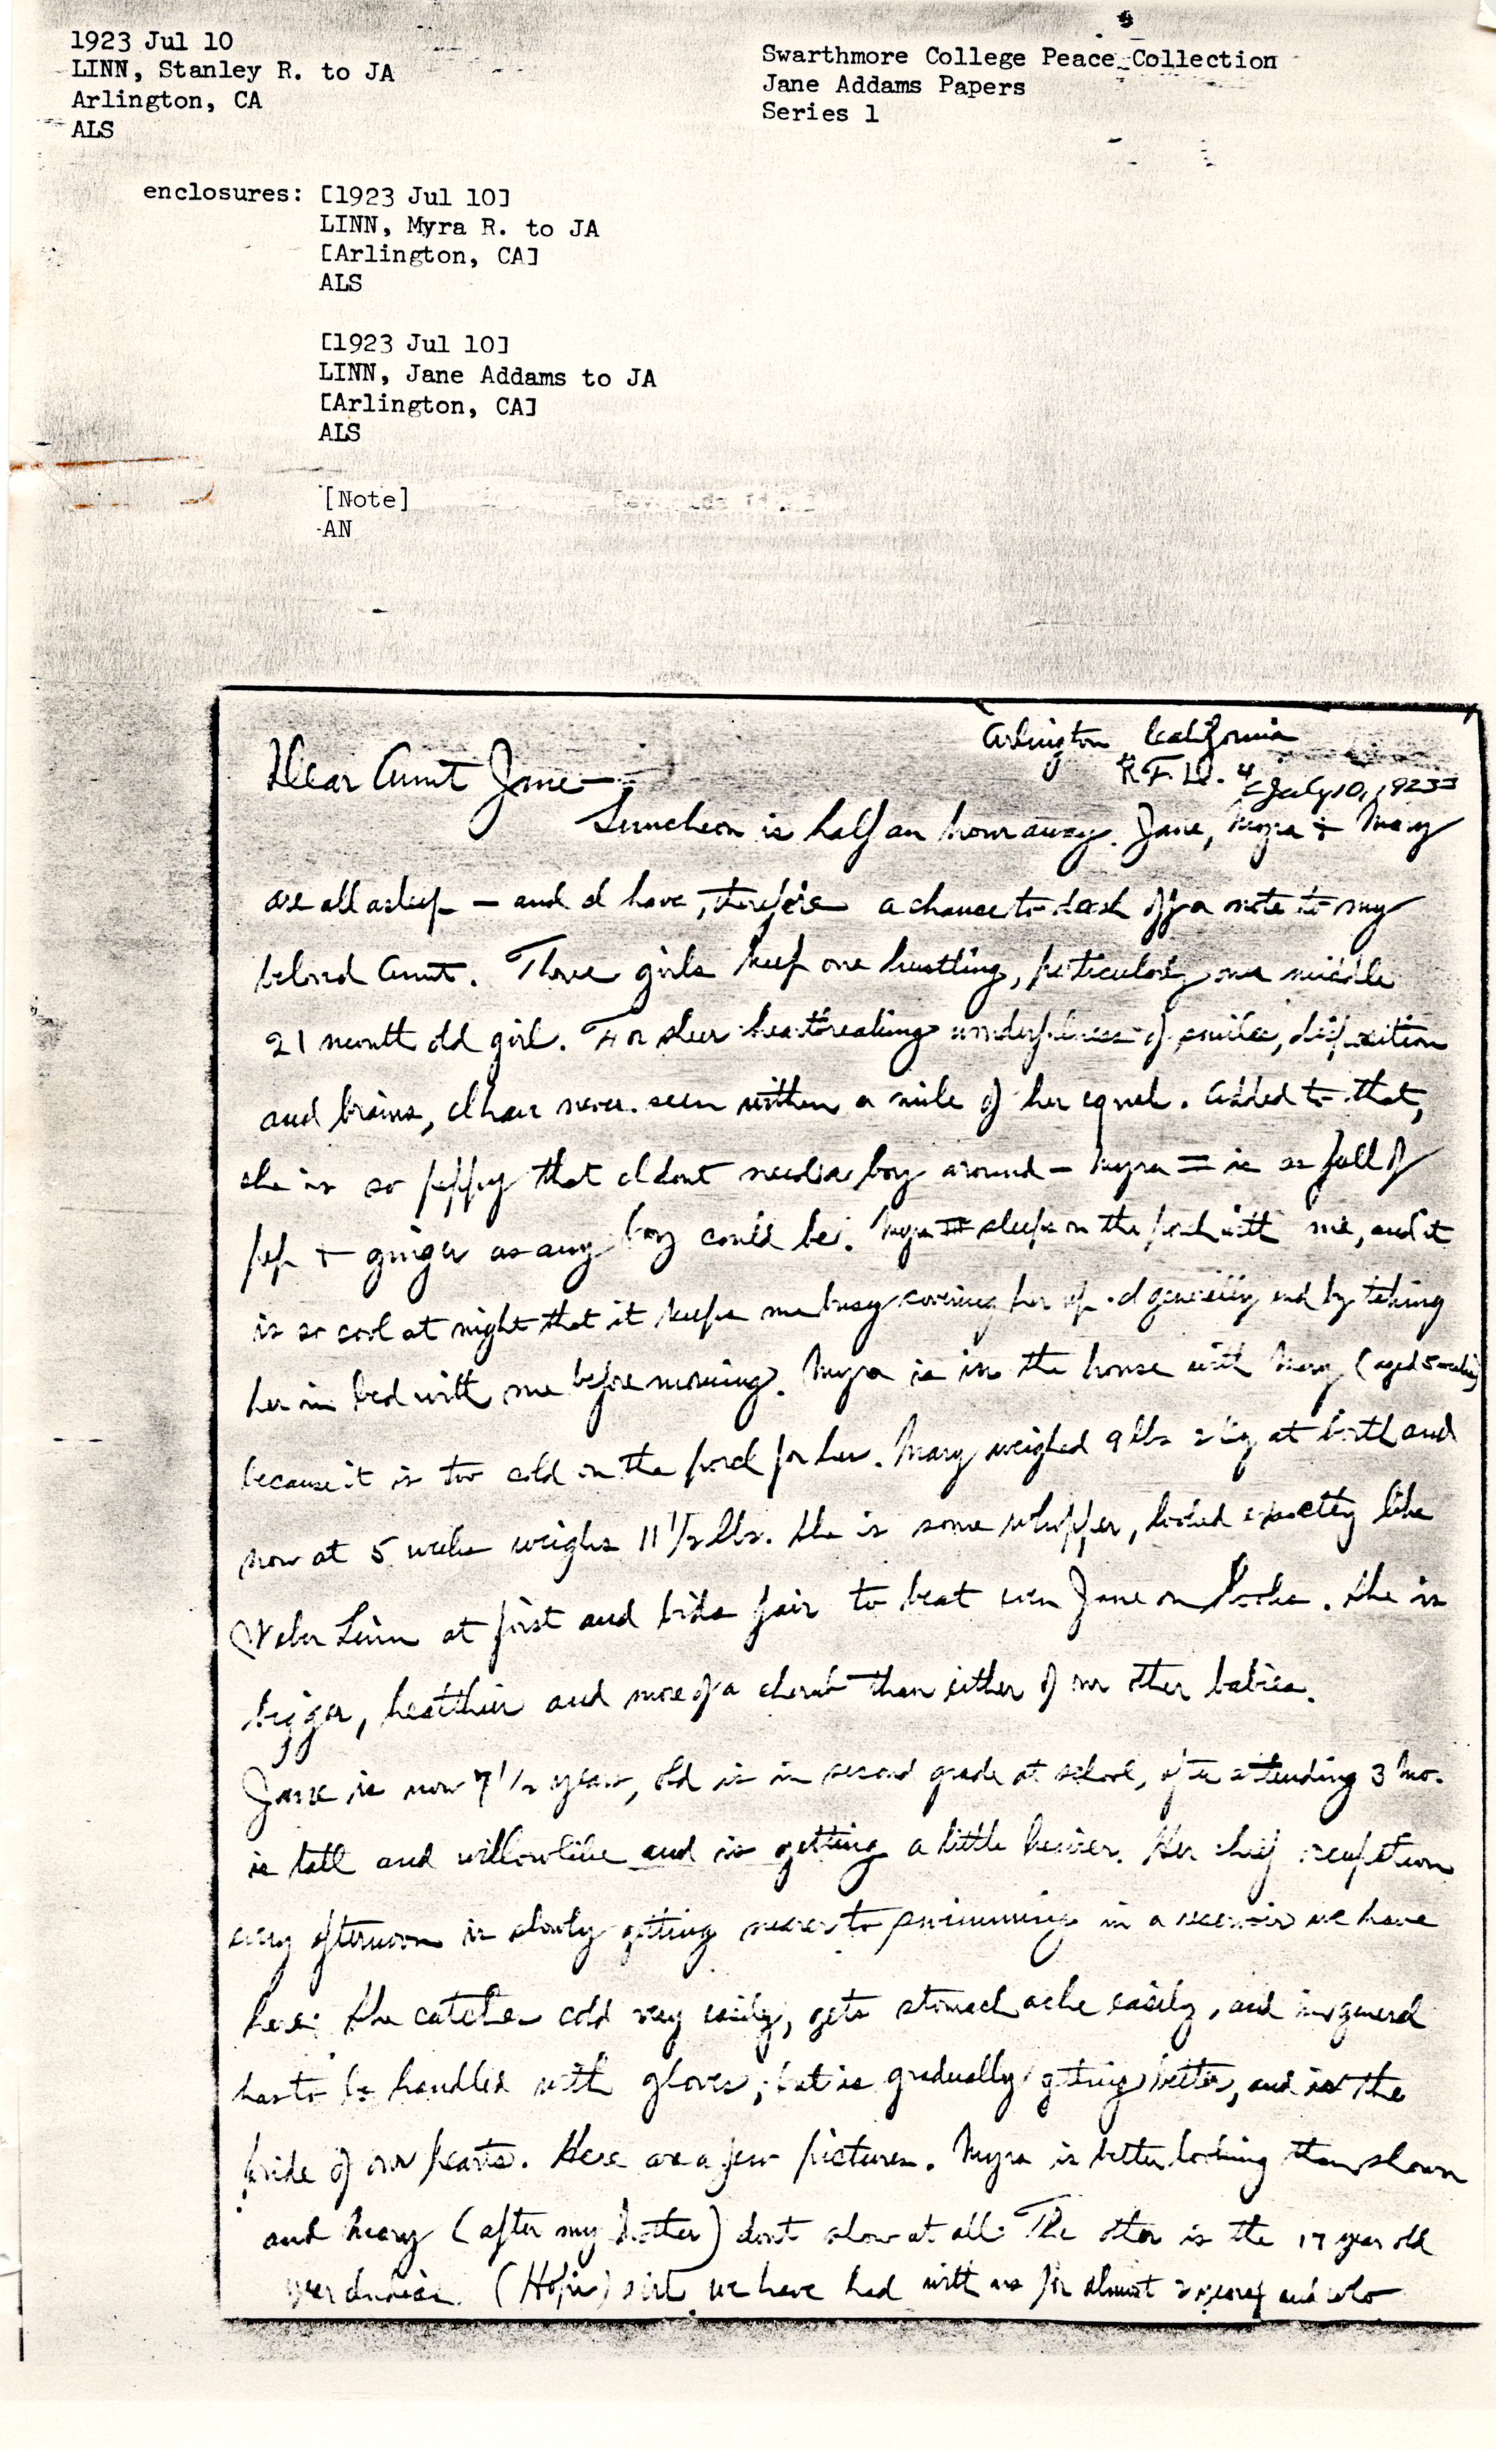 1923 Jul 10
LINN, Stanley R. to JA
Arlington, CA
ALS
Swarthmore College Peace Collection
Jane Addams Papers
Series 1
enclosures: [1923 Jul 10]
LINN, Myra R. to JA
[Arlington, CA]
ALS
[1923 Jul 10]
LINN, Jane Addams to JA
[Arlington, CA]
ALS
[Note]
AN
Arlington California
R.F.D. 4
[July 10, 1923]
Dear Aunt Jane—
Luncheon is half an hour away. Jane, Myra + Mary
are all asleep — and I have, therefore a chance to dash off a note to my
beloved Aunt. Three girls keep one hustling, particularly our middle
21 month old girl. For sheer heartbreaking wonderfulness of smiles, disposition
and brains, I have never seen within a mile of her equal. Added to that,
she is so peppy that I dont need a boy around — Myra II is as full of
pep + ginger as any boy could be. Myra II sleeps on the porch with me, and it
is so cool at night that it keeps me busy covering her up. I generally end by taking
her in bed with me before morning. Myra is in the house with Mary (aged 5 weeks)
because it is too cold on the porch for her. Mary weighed 9 lbs at birth and
now at 5 weeks weighs 11 1/2 lbs. She is some whopper, looked exactly like
Weber Linn at first and bids fair to beat even Jane on looks. She is
bigger, healthier and more of a cherub than either of our other babies.
Jane is now 7 1/2 years, old is in second grade at school, after attending 3 mo.
is tall and willowlike and is getting a little heavier. Her chief occupation
every afternoon is slowly getting nearer to swimming in a reservoir we have
here. She catches cold very easily, gets stomach ache easily, and in general
has to be handled with gloves; but is gradually getting better, and is the
pride of our hearts. Here are a few pictures. Myra is better looking than shown
and Mary (after my mother) dont show at all. The other is the 17 year old
(Hopi) girl we have had with us for almost 2 years and who